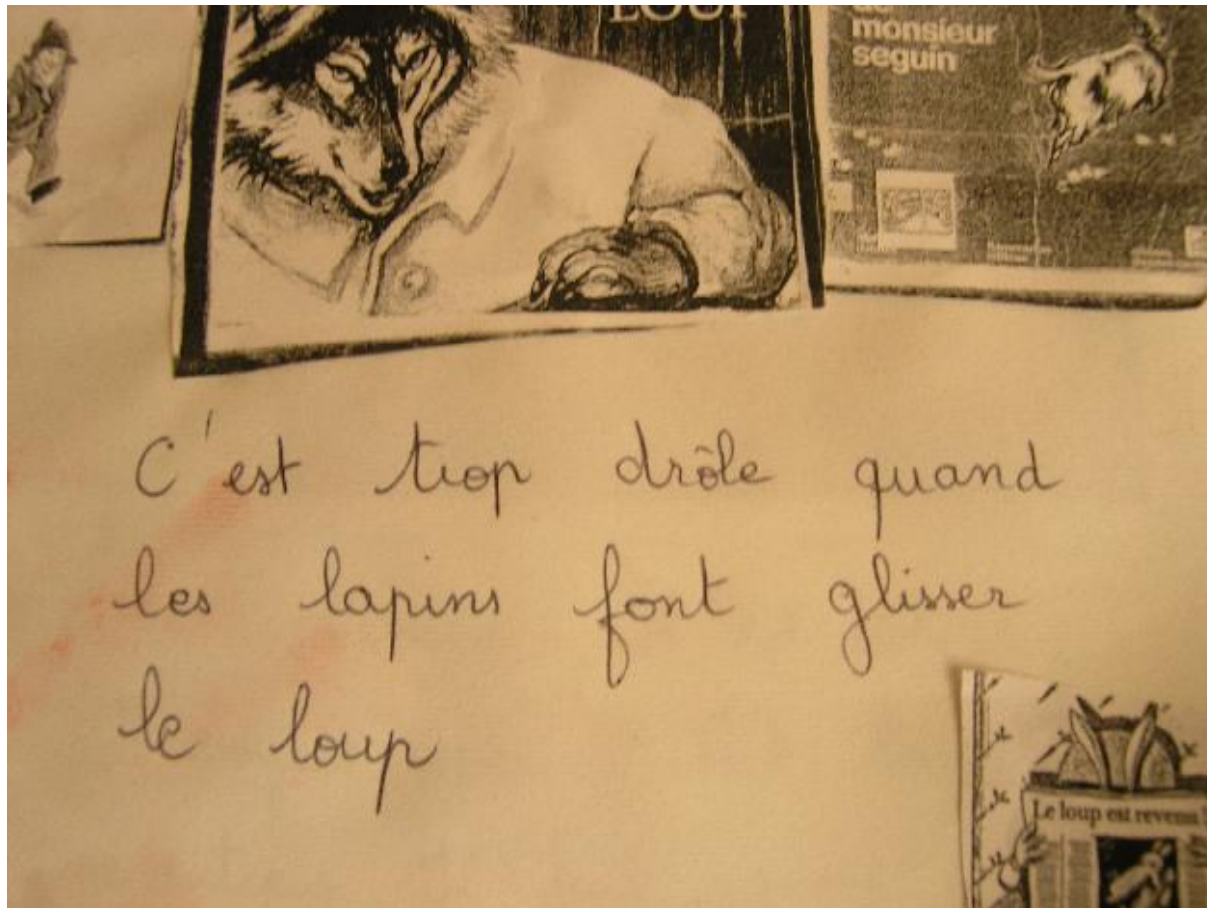 LOUP
monsieur
seguin
C'est trop drôle quand
les lapins font glisser
le loup
Le loup est revenu !